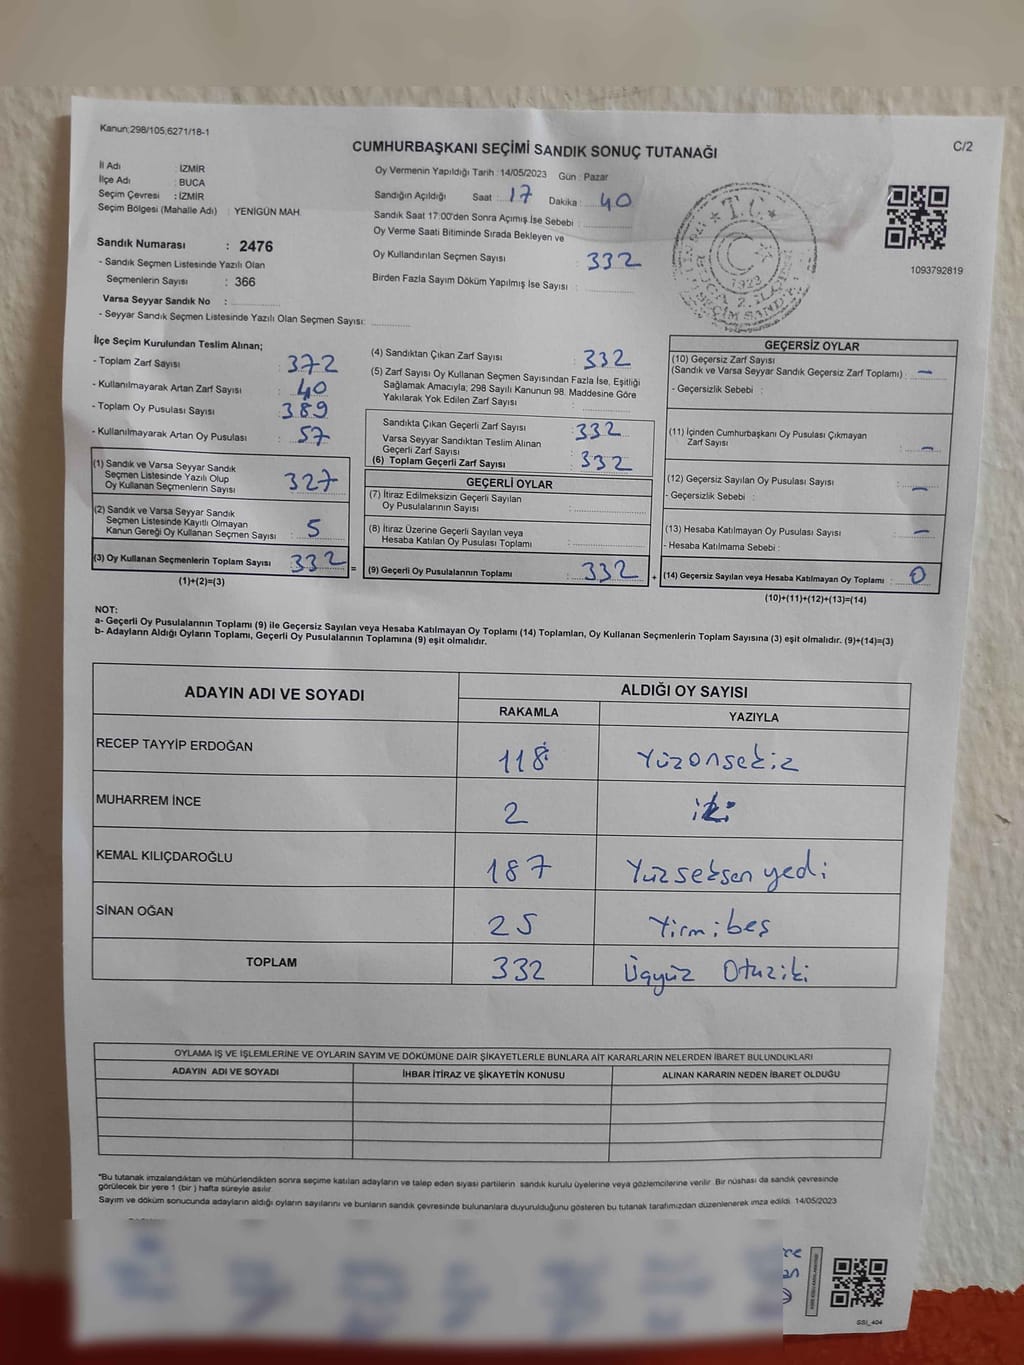 Kanun;298/105,6271/18-1
CUMHURBAŞKANI SEÇİMİ SANDIK SONUÇ TUTANAĞI
C/2
İl Adı : İZMİR
İlçe Adı : BUCA
Seçim Çevresi : İZMİR
Seçim Bölgesi (Mahalle Adı) : YENİGÜN MAH.
Sandık Numarası : 2476
- Sandık Seçmen Listesinde Yazılı Olan
Seçmenlerin Sayısı : 366
Varsa Seyyar Sandık No :
- Seyyar Sandık Seçmen Listesinde Yazılı Olan Seçmen Sayısı:
Oy Vermenin Yapıldığı Tarih : 14/05/2023 Gün : Pazar
Sandığın Açıldığı Saat : 17 Dakika : 40
Sandık Saat 17:00'den Sonra Açımış İse Sebebi :
Oy Verme Saati Bitiminde Sırada Bekleyen ve
Oy Kullandırılan Seçmen Sayısı : 332
Birden Fazla Sayım Döküm Yapılmış İse Sayısı :
T.C.
1923
1093792819
İlçe Seçim Kurulundan Teslim Alınan;
- Toplam Zarf Sayısı : 372
- Kullanılmayarak Artan Zarf Sayısı : 40
- Toplam Oy Pusulası Sayısı : 389
- Kullanılmayarak Artan Oy Pusulası : 57
(1) Sandık ve Varsa Seyyar Sandık
Seçmen Listesinde Yazılı Olup
Oy Kullanan Seçmenlerin Sayısı : 327
(2) Sandık ve Varsa Seyyar Sandık
Seçmen Listesinde Kayıtlı Olmayan
Kanun Gereği Oy Kullanan Seçmen Sayısı : 5
(3) Oy Kullanan Seçmenlerin Toplam Sayısı : 332 =
(1)+(2)=(3)
(4) Sandıktan Çıkan Zarf Sayısı : 332
(5) Zarf Sayısı Oy Kullanan Seçmen Sayısından Fazla İse, Eşitliği
Sağlamak Amacıyla; 298 Sayılı Kanunun 98. Maddesine Göre
Yakılarak Yok Edilen Zarf Sayısı :
Sandıkta Çıkan Geçerli Zarf Sayısı : 332
Varsa Seyyar Sandıktan Teslim Alınan
Geçerli Zarf Sayısı :
(6) Toplam Geçerli Zarf Sayısı : 332
GEÇERLİ OYLAR
(7) İtiraz Edilmeksizin Geçerli Sayılan
Oy Pusulalarının Sayısı :
(8) İtiraz Üzerine Geçerli Sayılan veya
Hesaba Katılan Oy Pusulası Toplamı :
(9) Geçerli Oy Pusulalarının Toplamı : 332 +
GEÇERSİZ OYLAR
(10) Geçersiz Zarf Sayısı
(Sandık ve Varsa Seyyar Sandık Geçersiz Zarf Toplamı) : –
- Geçersizlik Sebebi :
(11) İçinden Cumhurbaşkanı Oy Pusulası Çıkmayan
Zarf Sayısı : –
(12) Geçersiz Sayılan Oy Pusulası Sayısı : –
- Geçersizlik Sebebi :
(13) Hesaba Katılmayan Oy Pusulası Sayısı : –
- Hesaba Katılmama Sebebi :
(14) Geçersiz Sayılan veya Hesaba Katılmayan Oy Toplamı : 0
(10)+(11)+(12)+(13)=(14)
NOT:
a- Geçerli Oy Pusulasının Toplamı (9) ile Geçersiz Sayılan veya Hesaba Katılmayan Oy Toplamı (14) Toplamları, Oy Kullanan Seçmenlerin Toplam Sayısına (3) eşit olmalıdır. (9)+(14)=(3)
b- Adayların Aldığı Oyların Toplamı, Geçerli Oy Pusulalarının Toplamına (9) eşit olmalıdır.
ADAYIN ADI VE SOYADI ALDIĞI OY SAYISI
RAKAMLA YAZIYLA
RECEP TAYYİP ERDOĞAN 118 Yüzonsekiz
MUHARREM İNCE 2 iki
KEMAL KILIÇDAROĞLU 187 Yüzseksenyedi
SİNAN OĞAN 25 Yirmibeş
TOPLAM 332 Üçyüz Otuziki
OYLAMA İŞ VE İŞLEMLERİNE VE OYLARIN SAYIM VE DÖKÜMÜNE DAİR ŞİKAYETLERLE BUNLARA AİT KARARLARIN NELERDEN İBARET BULUNDUKLARI
ADAYIN ADI VE SOYADI İHBAR İTİRAZ VE ŞİKAYETİN KONUSU ALINAN KARARIN NEDEN İBARET OLDUĞU
*Bu tutanak imzalandıktan ve mühürlendikten sonra seçime katılan adayların ve talep eden siyasi partilerin sandık kurulu üyelerine veya gözlemcilerine verilir. Bir nüshası da sandık çevresinde
görülecek bir yere 1 (bir) hafta süreyle asılır
Sayım ve döküm sonucunda adayların aldığı oyların sayılarını ve bunların sandık çevresinde bulunanlara duyurulduğunu gösteren bu tutanak tarafımızdan düzenlenerek imza edildi. 14/05/2023
SSI_404